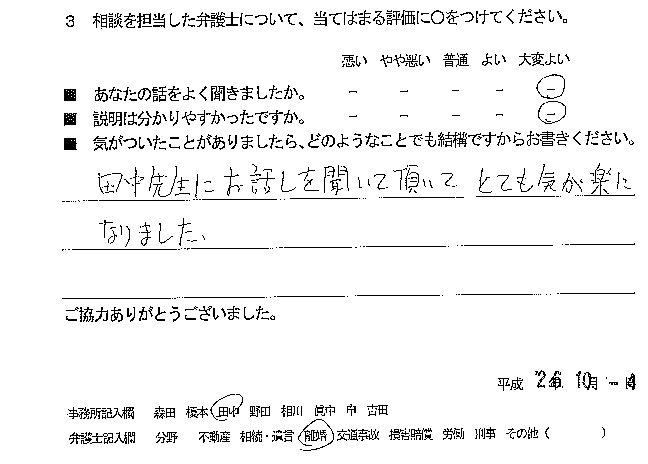 3 相談を担当した弁護士について、当てはまる評価に○をつけてください。
悪い やや悪い 普通 よい 大変よい
■ あなたの話をよく聞きましたか。 － － － － －
■ 説明は分かりやすかったですか。 － － － － －
■ 気がついたことがありましたら、どのようなことでも結構ですからお書きください。
田中先生にお話しを聞いて頂いて とても気が楽に
なりました、
ご協力ありがとうございました。
平成 26年 10月 -4日
事務所記入欄 森田 榎本 田中 野田 相川 眞中 申 吉田
弁護士記入欄 分野 不動産 相続・遺言 離婚 交通事故 損害賠償 労働 刑事 その他（ ）